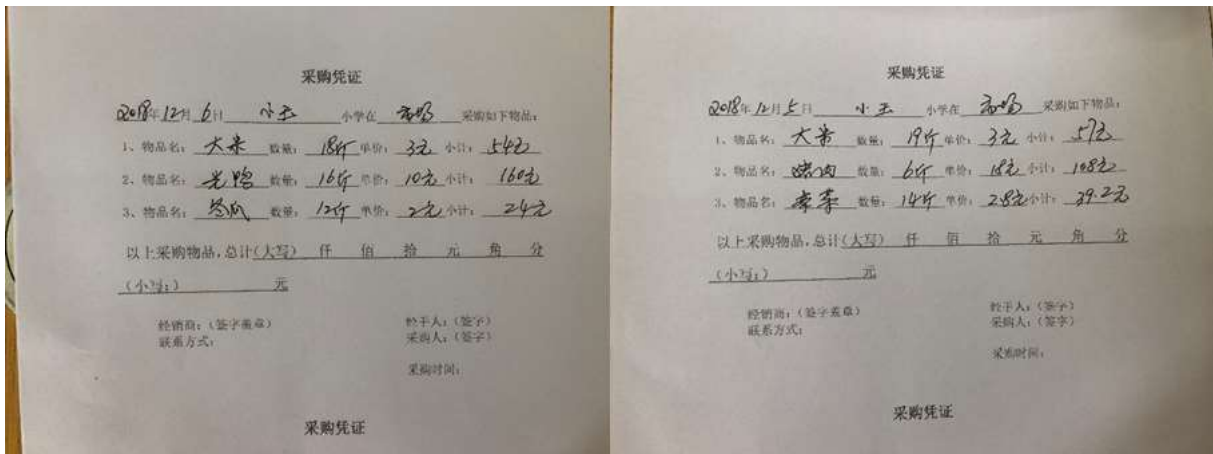 采购凭证
2018年12月6日 小玉 小学在 市场 采购如下物品:
1、物品名: 大米 数量: 18斤 单价: 3元 小计: 54元
2、物品名: 光鸭 数量: 16斤 单价: 10元 小计: 160元
3、物品名: 冬瓜 数量: 12斤 单价: 2元 小计: 24元
以上采购物品,总计(大写) 仟 佰 拾 元 角 分
(小写:) 元
经销商:(签字盖章) 经手人:(签字)
联系方式: 采购人:(签字)
采购时间:
采购凭证
采购凭证
2018年12月5日 小玉 小学在 市场 采购如下物品:
1、物品名: 大米 数量: 19斤 单价: 3元 小计: 57元
2、物品名: 数量: 6斤 单价: 18元 小计: 108元
3、物品名: 数量: 14斤 单价: 2.8元 小计: 39.2元
以上采购物品,总计(大写) 仟 佰 拾 元 角 分
(小写:) 元
经销商:(签字盖章) 经手人:(签字)
联系方式: 采购人:(签字)
采购时间:
采购凭证